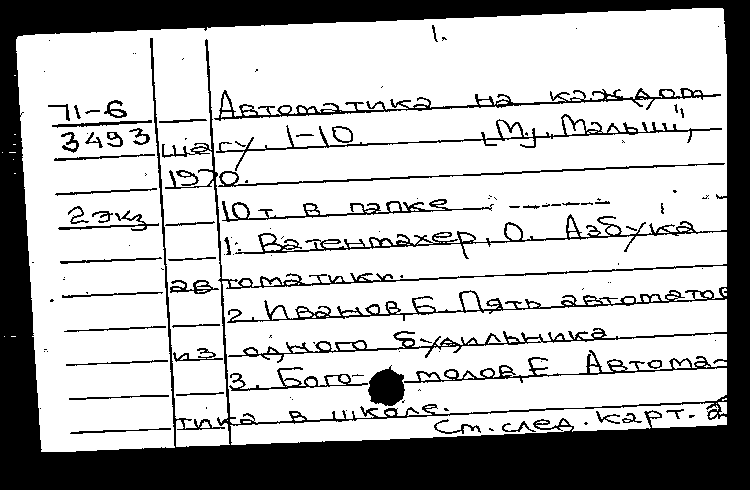 1.
71-6 Автоматика на каждом
3493 шагу. 1-10. [М., „Малыш",
1970.
2 экз 10 т. в папке
1. Ватентахер, О. Азбука
автоматики.
2. Иванов, Б. Пять автоматов
из одного будильника
3. Бого- молов, Е Автома-
тика в школе.
См. след. карт. 2